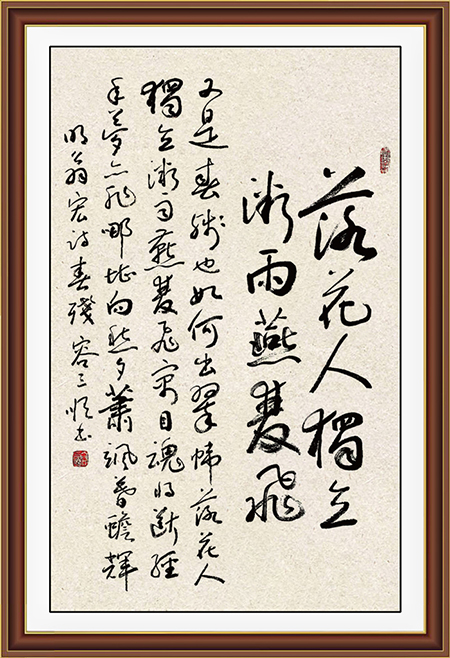 落花人獨立
微雨燕雙飛
又是春殘也如何出翠幃落花人
獨立微雨燕雙飛寓目魂将斷經
年夢亦非哪堪向愁夕蕭颯暮蟾輝
明翁宏诗春殘 容三順书